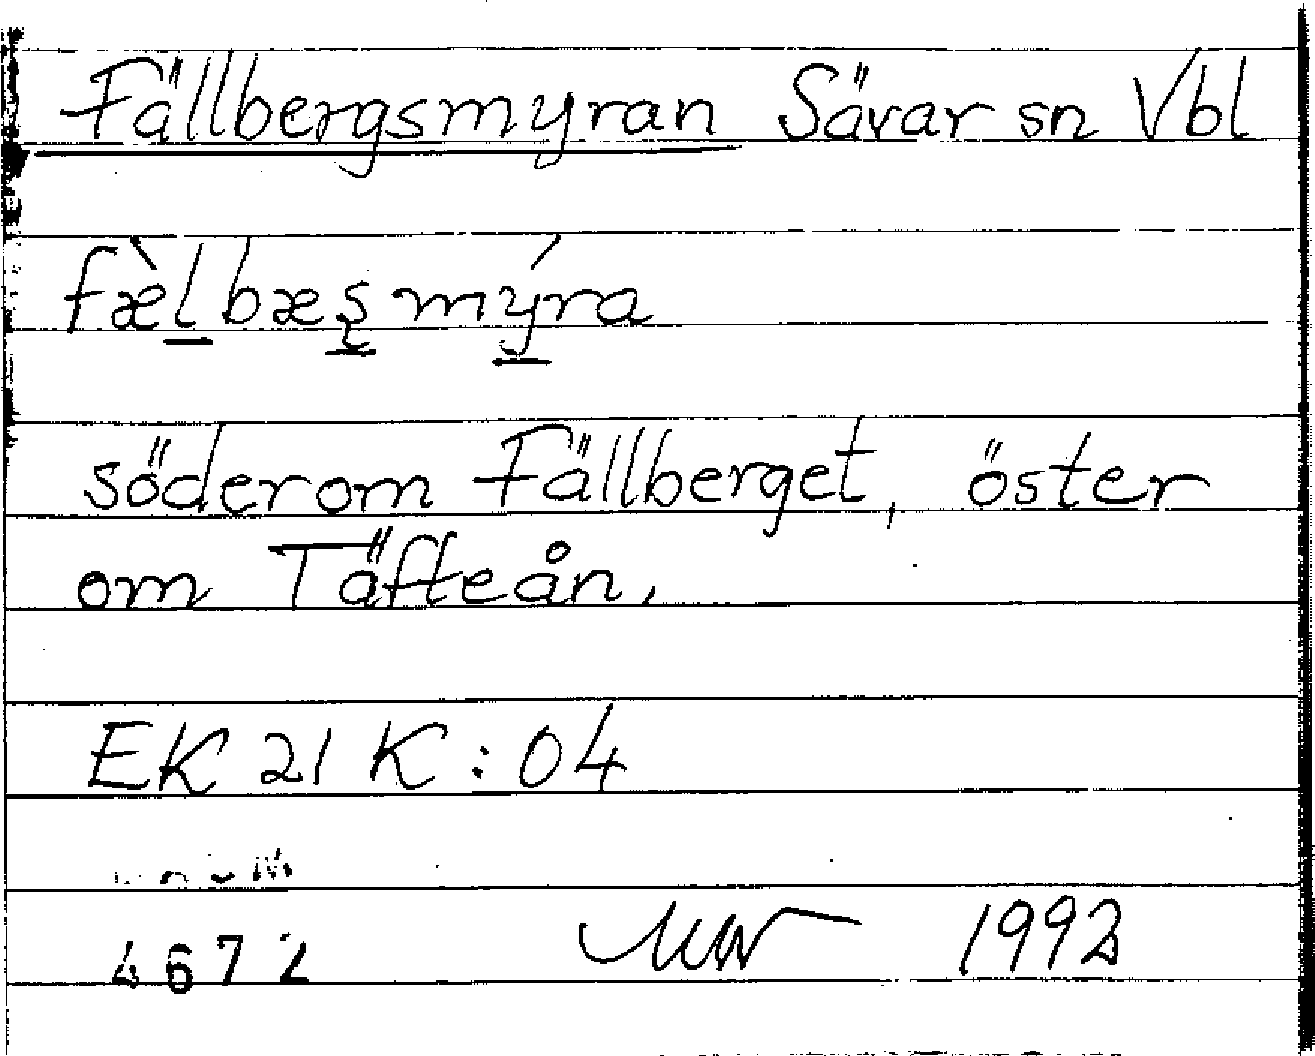 Fällbergsmyran Sävar sn Vbl
fæ̀l̲bæş̲mý̲ra
söderom Fällberget, öster
om Täfteån.
EK 21 K : 04
4672 1992